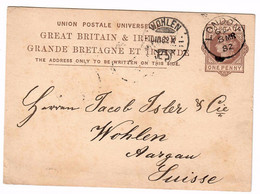 UNION POSTALE UNIVERSE
WOHLEN
GREAT BRITAIN &
LONDON
GRANDE BRETAGNE ET
82
THE ADDRESS ONLY TO BE WRITTEN ON THIS SIDE.
ONE PENNY
Herren Jacob Isler & Cie
Wohlen
Aargau
Suisse